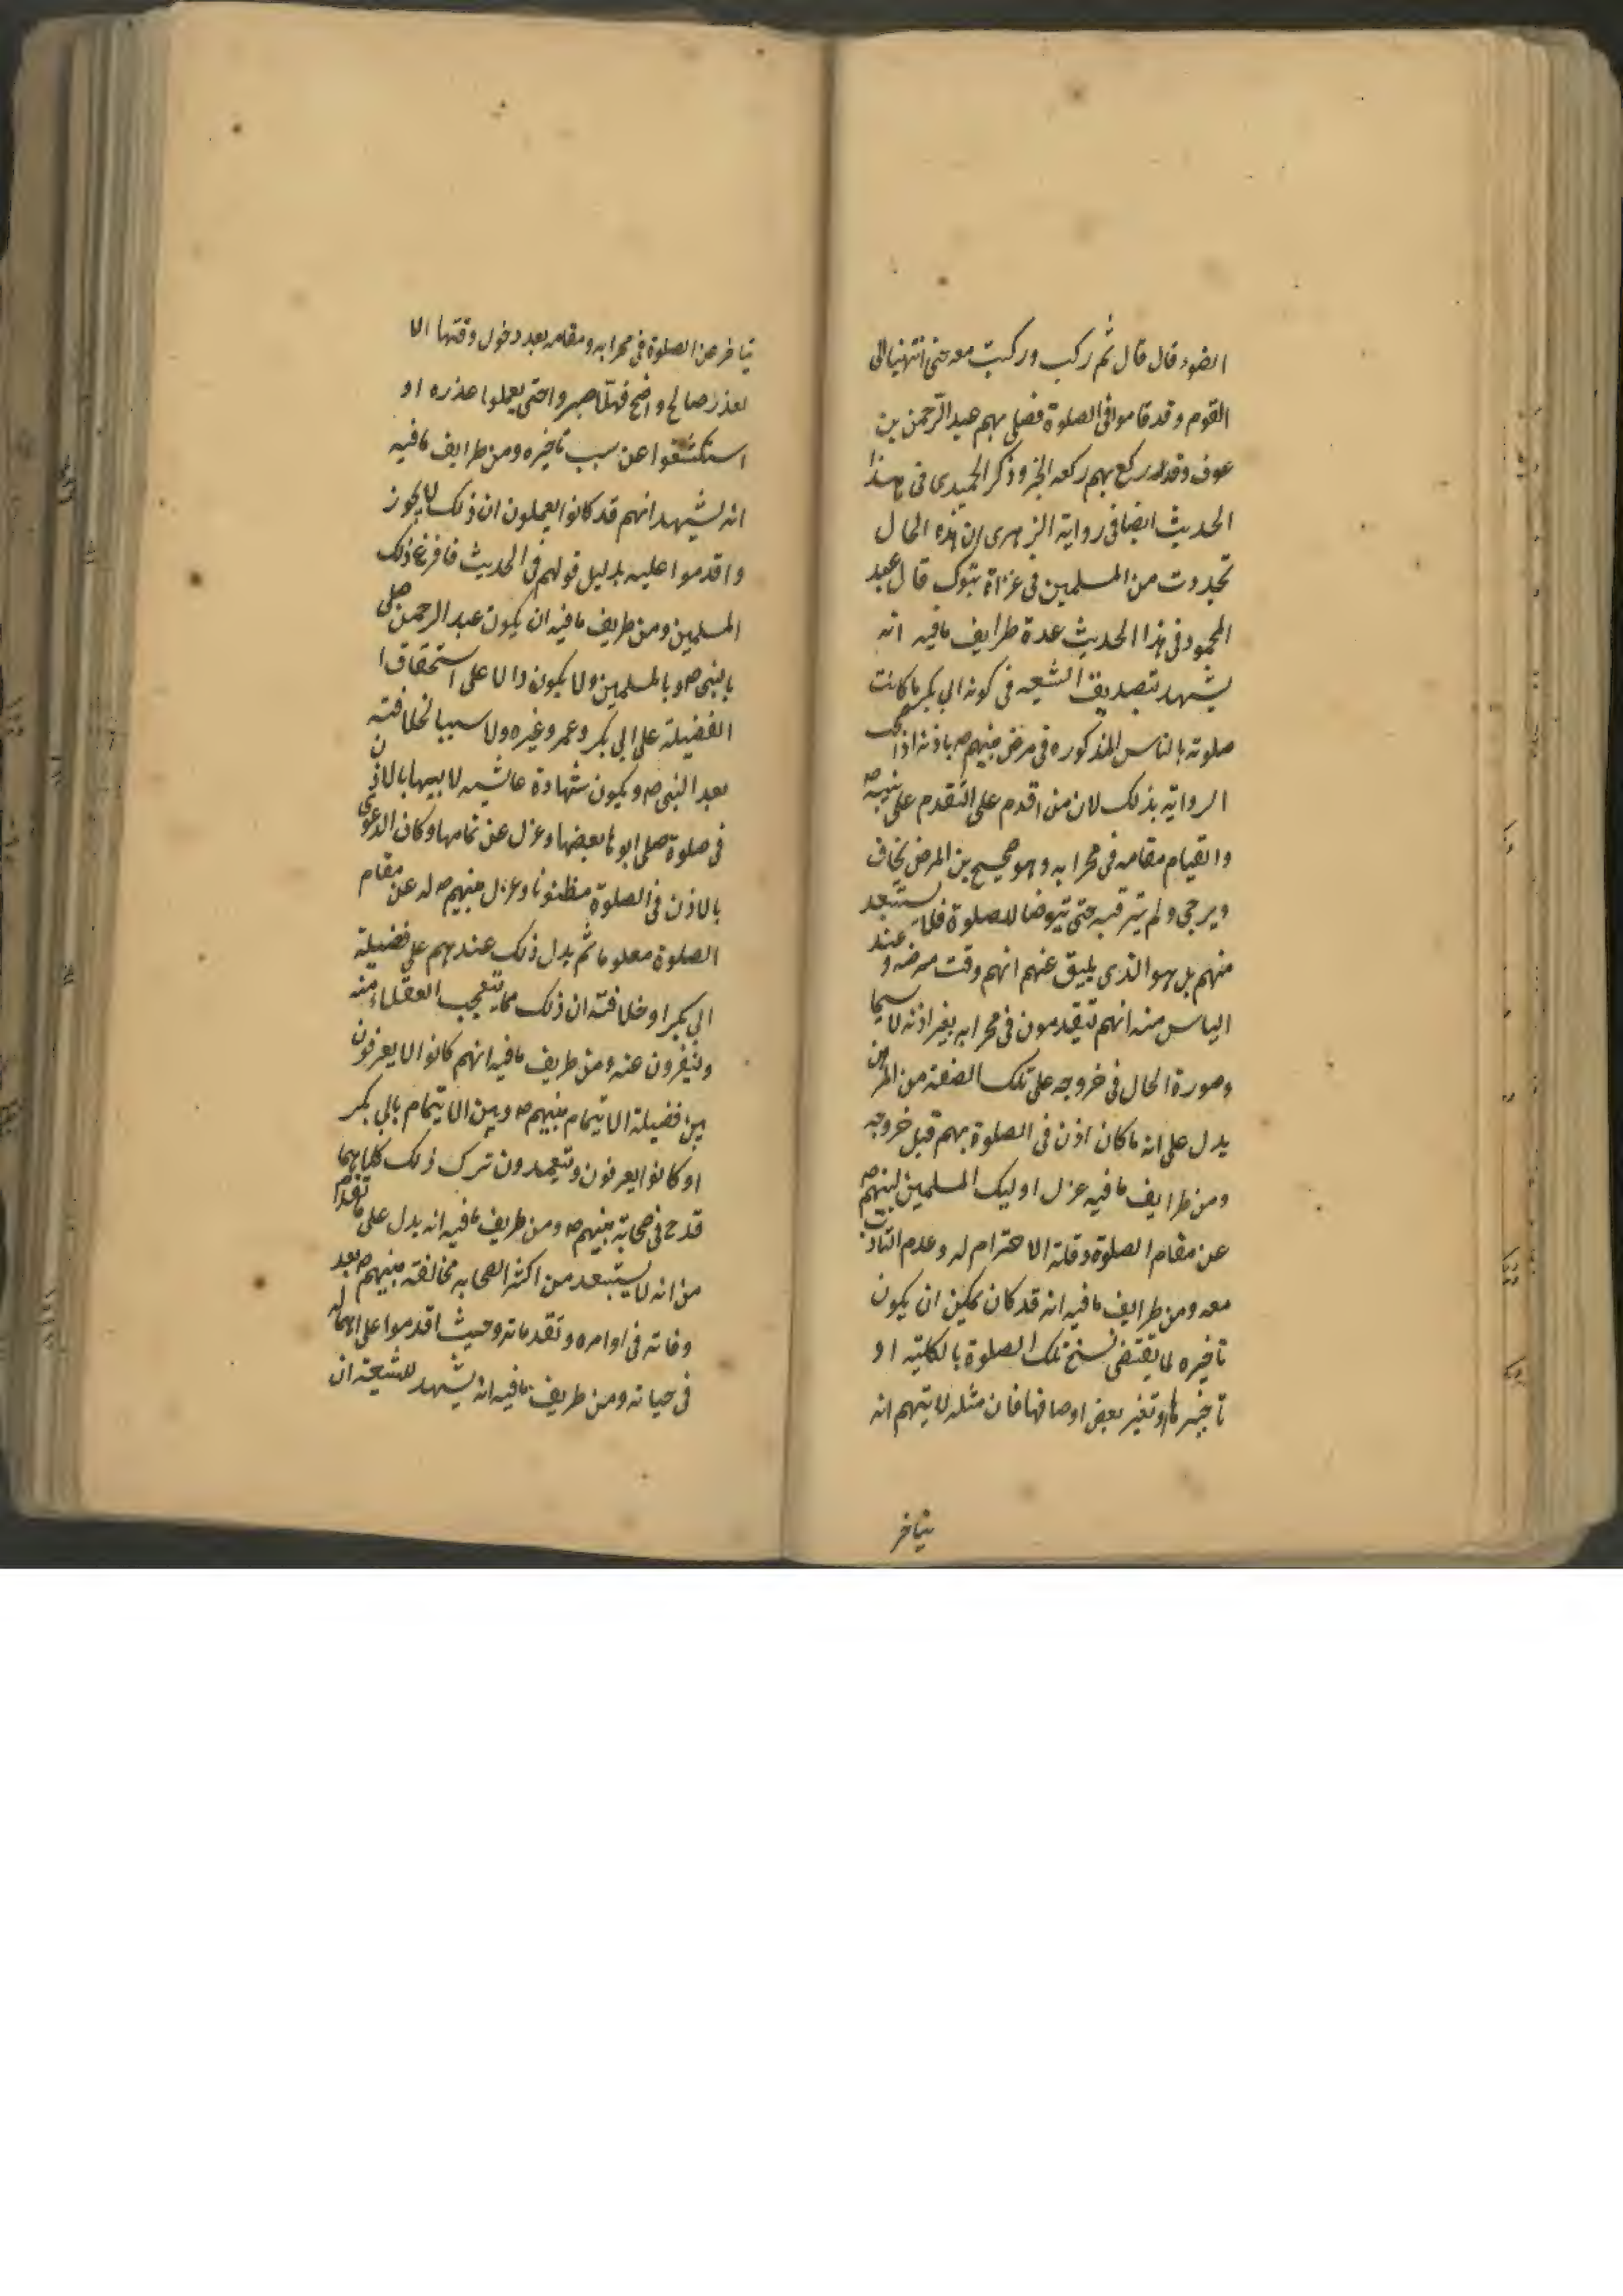 الضوء قال قال ثم ركب وركبت معه حتى انتهنيا الى
القوم وقد قاموا فى الصلوة فصلى بهم عبد الرحمن بن
عوف وقد ركع بهم ركعه الخبر وذكر الحميدى فى هذا
الحديث ايضا فى رواية الزهرى ان هذه الحال
تجددت من المسلمين فى غزاة تبوك قال عبد
المحمود فى هذا الحديث عدة طرايف مافيه انه
يشهد بتصديق الشيعه فى كونه ابى بكر ما كانت
صلوته بالناس المذكوره فى مرض نبيهم ص باذنه اذا
الرواية بذلك لان من اقدم على التقدم على نبيه ص
والقيام مقامه فى محرابه وهو صحيح من المرض يخاف
ويرجى ولم يترقبه حتى يتوضا للصلوة فلا يستبعد
منهم بل هو الذى يليق عنهم انهم وقت مرضه و عند
الياس منه انهم يتقدمون فى محرابه بغير اذنه لا سيما
وصورة الحال فى خروجه على تلك الصفة من المرض
يدل على انه ما كان اذن فى الصلوة بهم قبل خروجه
ومن طرايف مافيه عزل اوليك المسلمين لنبيهم ص
عن مقام الصلوة وقلة الاحترام له وعدم التادب
معه ومن طرايف مافيه انه قد كان يمكن ان يكون
تاخيره لما يقتضى نسخ تلك الصلوة بالكلية او
تاخيرها وتغير بعض اوصافها فان مثله لا يتهم انه
يتاخر
يتاخر عن الصلوة فى محرابه ومقامه بعد دخول وقتها الا
لعذر صالح واضح فهلا صبروا حتى يعملوا عذره او
استكشفوا عن سبب تاخيره ومن طرايف مافيه
انه يشهد انهم قد كانوا يعملون ان ذلك لا يجوز
واقدموا عليه بدليل قولهم فى الحديث فافزع ذلك
المسلمين ومن طريف مافيه ان يكون عبد الرحمن صلى
بالنبى ص وبالمسلمين ولا يكون دالا على استحقاق
الفضيلة على ابى بكر وعمر وغيره ولا سببا لخلافته
بعد النبى ص ويكون شهادة عايشه لابيها بالاذن
فى صلوة صلى ابوها بعضها وعزل عن تمامها وكان الدعوى
بالاذن فى الصلوة مظنونا وعزل نبيهم ص له عن مقام
الصلوة معلوما ثم يدل ذلك عندهم على فضيلة
ابى بكر او خلافته ان ذلك مما يتعجب العقلاء منه
وينفرون عنه ومن طريف مافيه انهم كانوا لا يعرفون
بين فضيلة الايتمام بنبيهم ص وبين الايتمام بابى بكر
او كانوا يعرفون ويتعمدون ترك ذلك كلاهما
قدح فى صحابة نبيهم ص ومن طريف مافيه انه يدل على ما تقدم
من انه لا يستبعد من اكثر الصحابه مخالفة نبيهم ص بعد
وفاته فى اوامره وتقدماته وحيث اقدموا على اهماله
فى حياته ومن طريف مافيه انه يشهد للشيعة ان